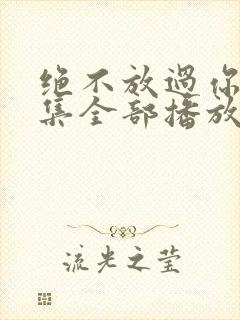 绝不放过你
集全部播放
流光之莹